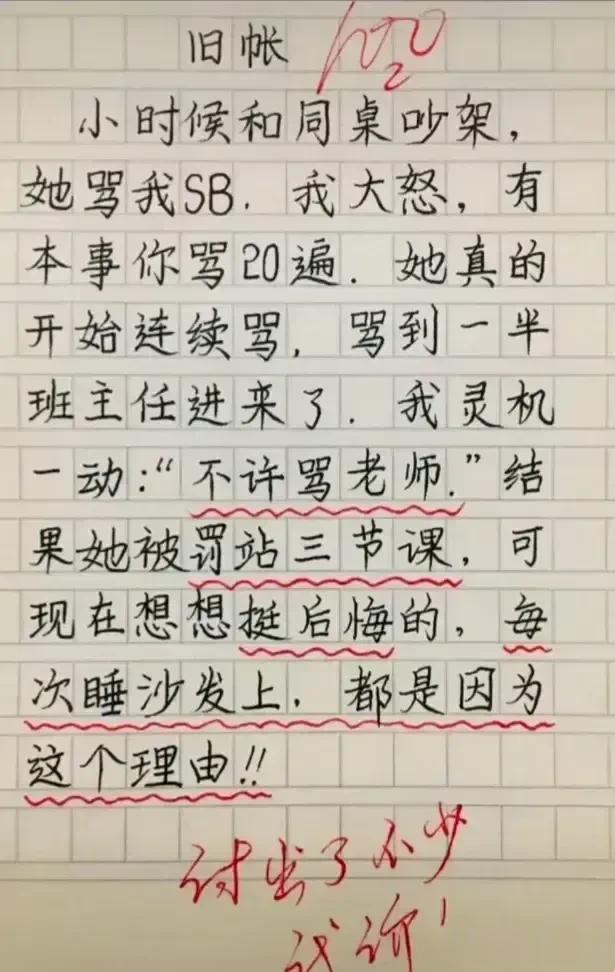 旧帐
100
小时候和同桌吵架,
她骂我SB. 我大怒, 有
本事你骂20遍. 她真的
开始连续骂, 骂到一半
班主任进来了. 我灵机
一动:“不许骂老师.”结
果她被罚站三节课, 可
现在想想挺后悔的, 每
次睡沙发上, 都是因为
这个理由!!
付出了不少
代价!